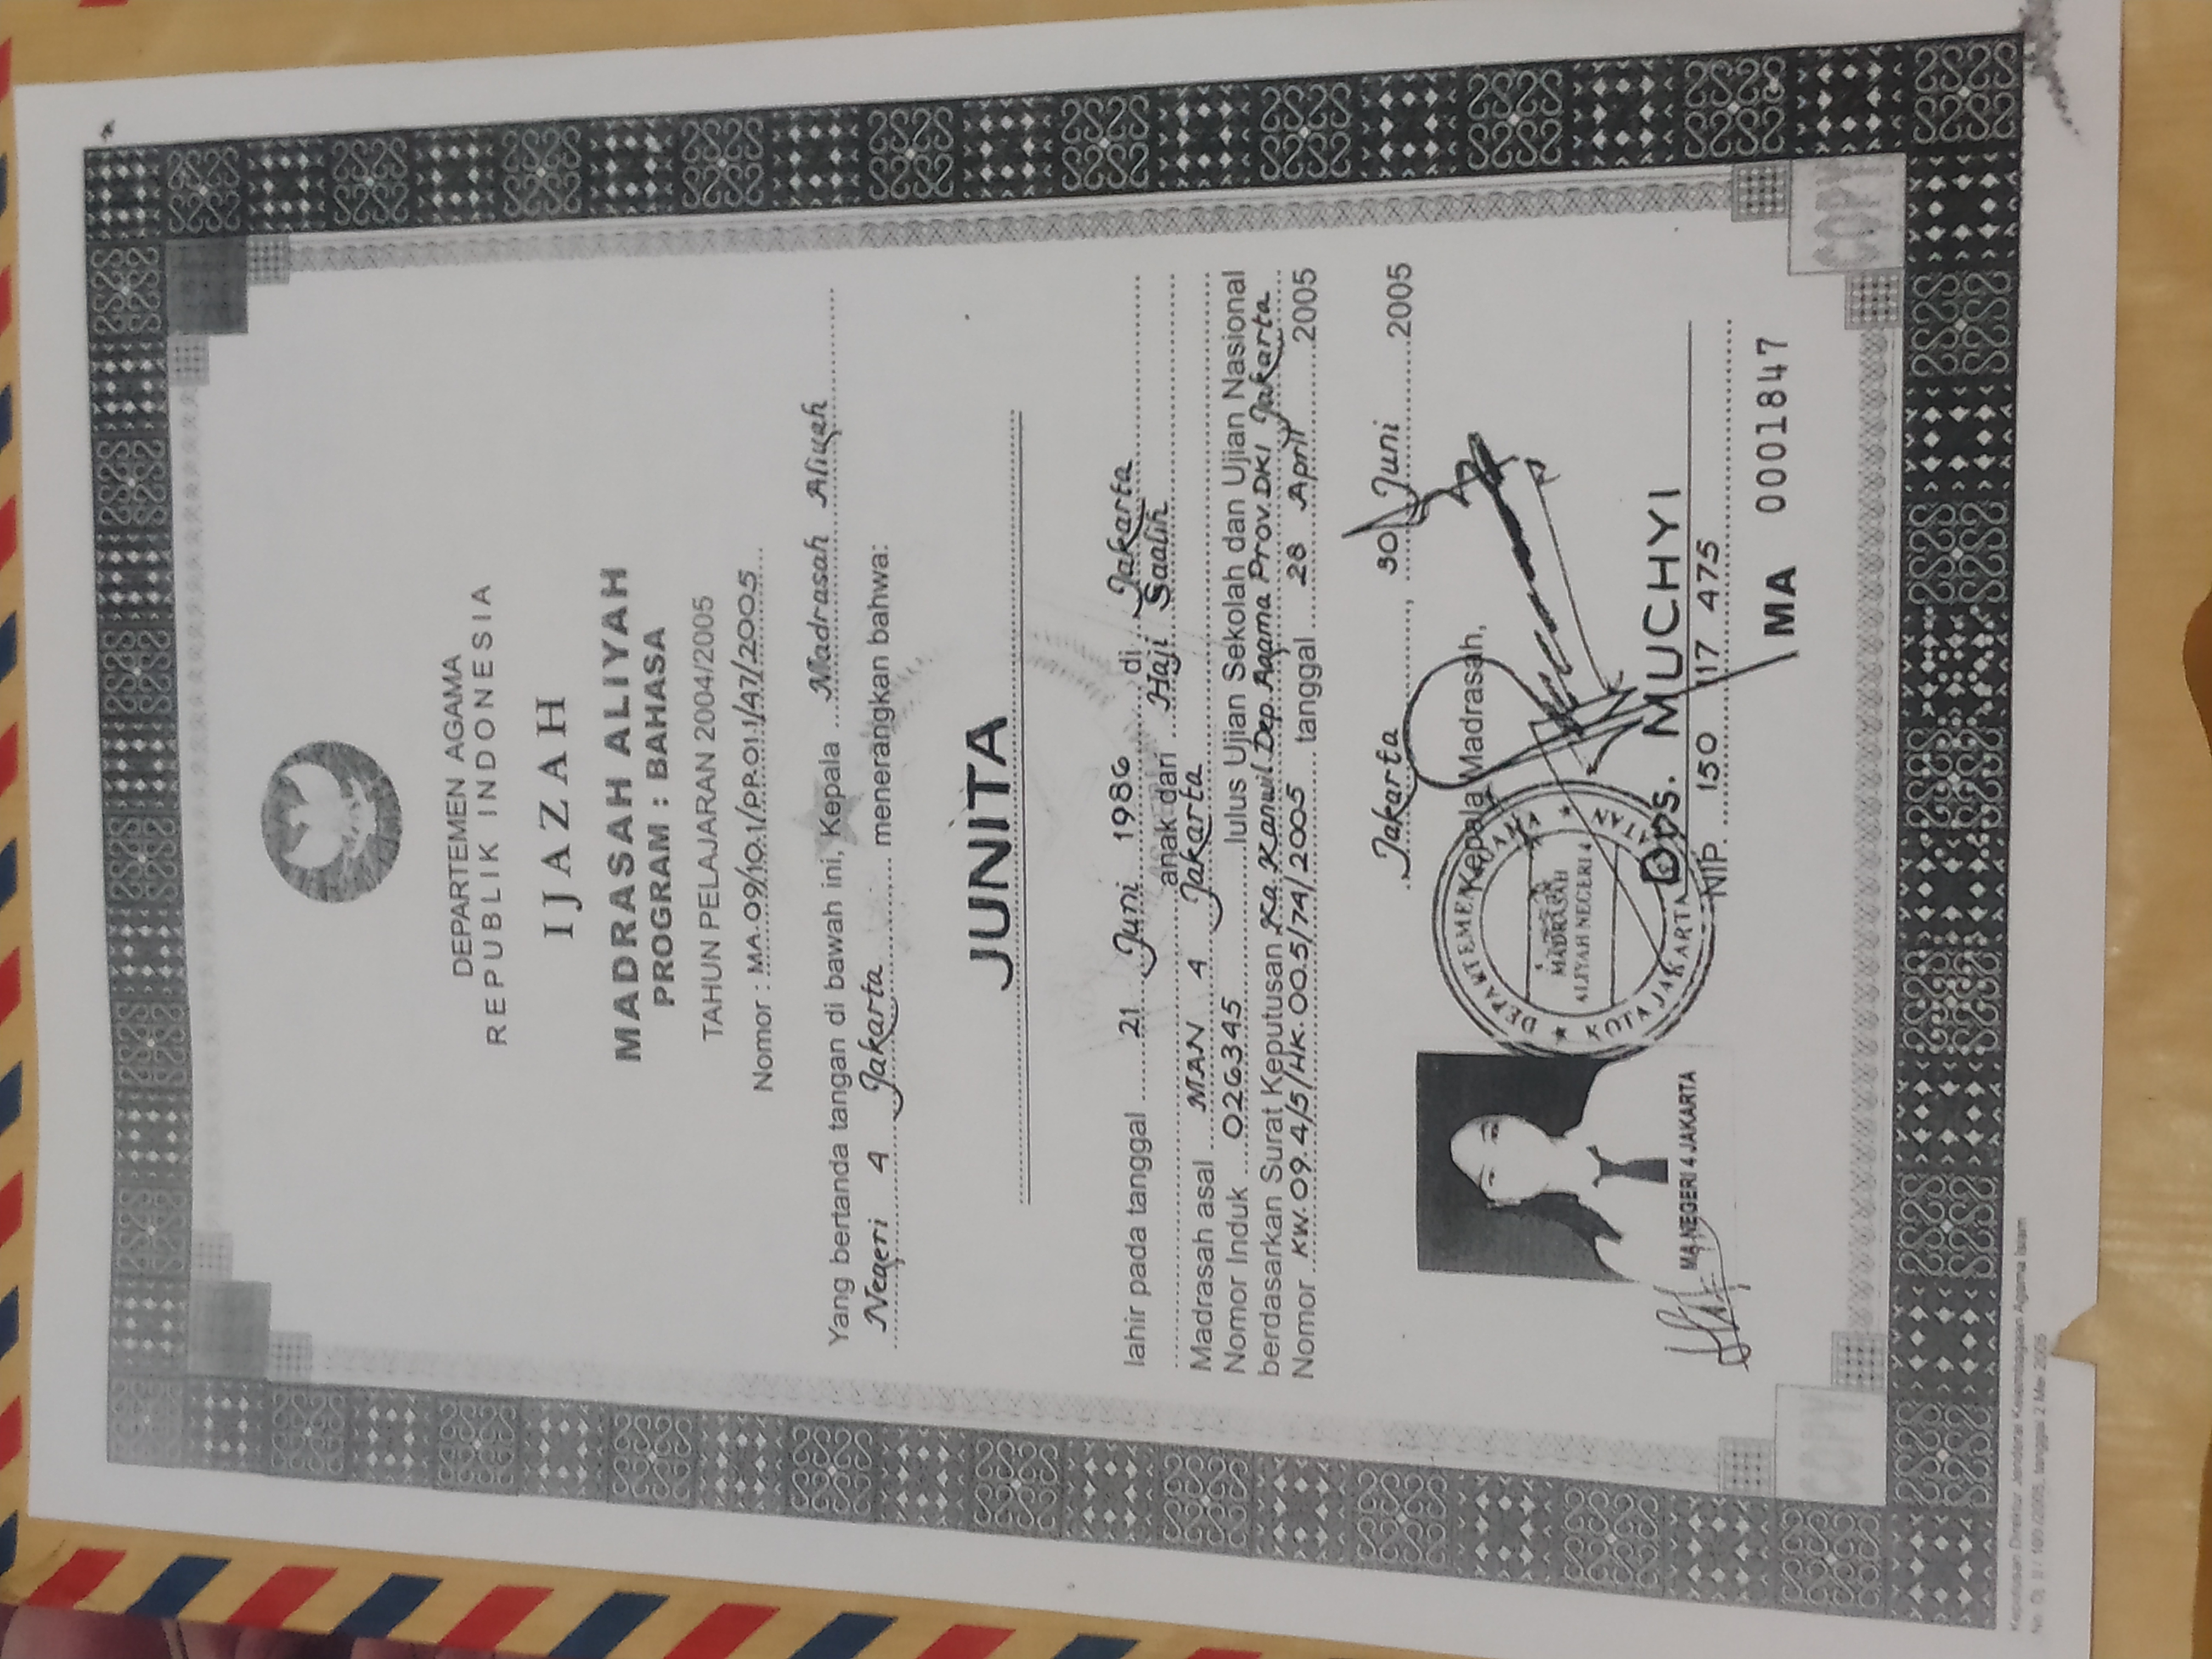 DEPARTEMEN AGAMA
REPUBLIK INDONESIA
IJAZAH
MADRASAH ALIYAH
PROGRAM : BAHASA
TAHUN PELAJARAN 2004/2005
Nomor : MA.09/10.1/PP.01.1/47/2005
Yang bertanda tangan di bawah ini, Kepala Madrasah Aliyah
Negeri 4 Jakarta menerangkan bahwa:
JUNITA
lahir pada tanggal 21 Juni 1986 di Jakarta
anak dari Haji Saalih
Madrasah asal MAN 4 Jakarta
Nomor Induk 026345 lulus Ujian Sekolah dan Ujian Nasional
berdasarkan Surat Keputusan Ka. Kanwil Dep. Agama Prov. DKI Jakarta
Nomor KW.09.4/5/HK.00.5/74/2005 tanggal 28 April 2005
Jakarta, 30 Juni 2005
Kepala Madrasah,
DEPARTEMEN AGAMA
MADRASAH
ALIYAH NEGERI 4
KOTA JAKARTA SELATAN
MA NEGERI 4 JAKARTA
Drs. MUCHYI
NIP. 150 117 475
MA 0001847
COPY
COPY
Keputusan Direktur Jenderal Kelembagaan Agama Islam
tanggal 2 Mei 2005